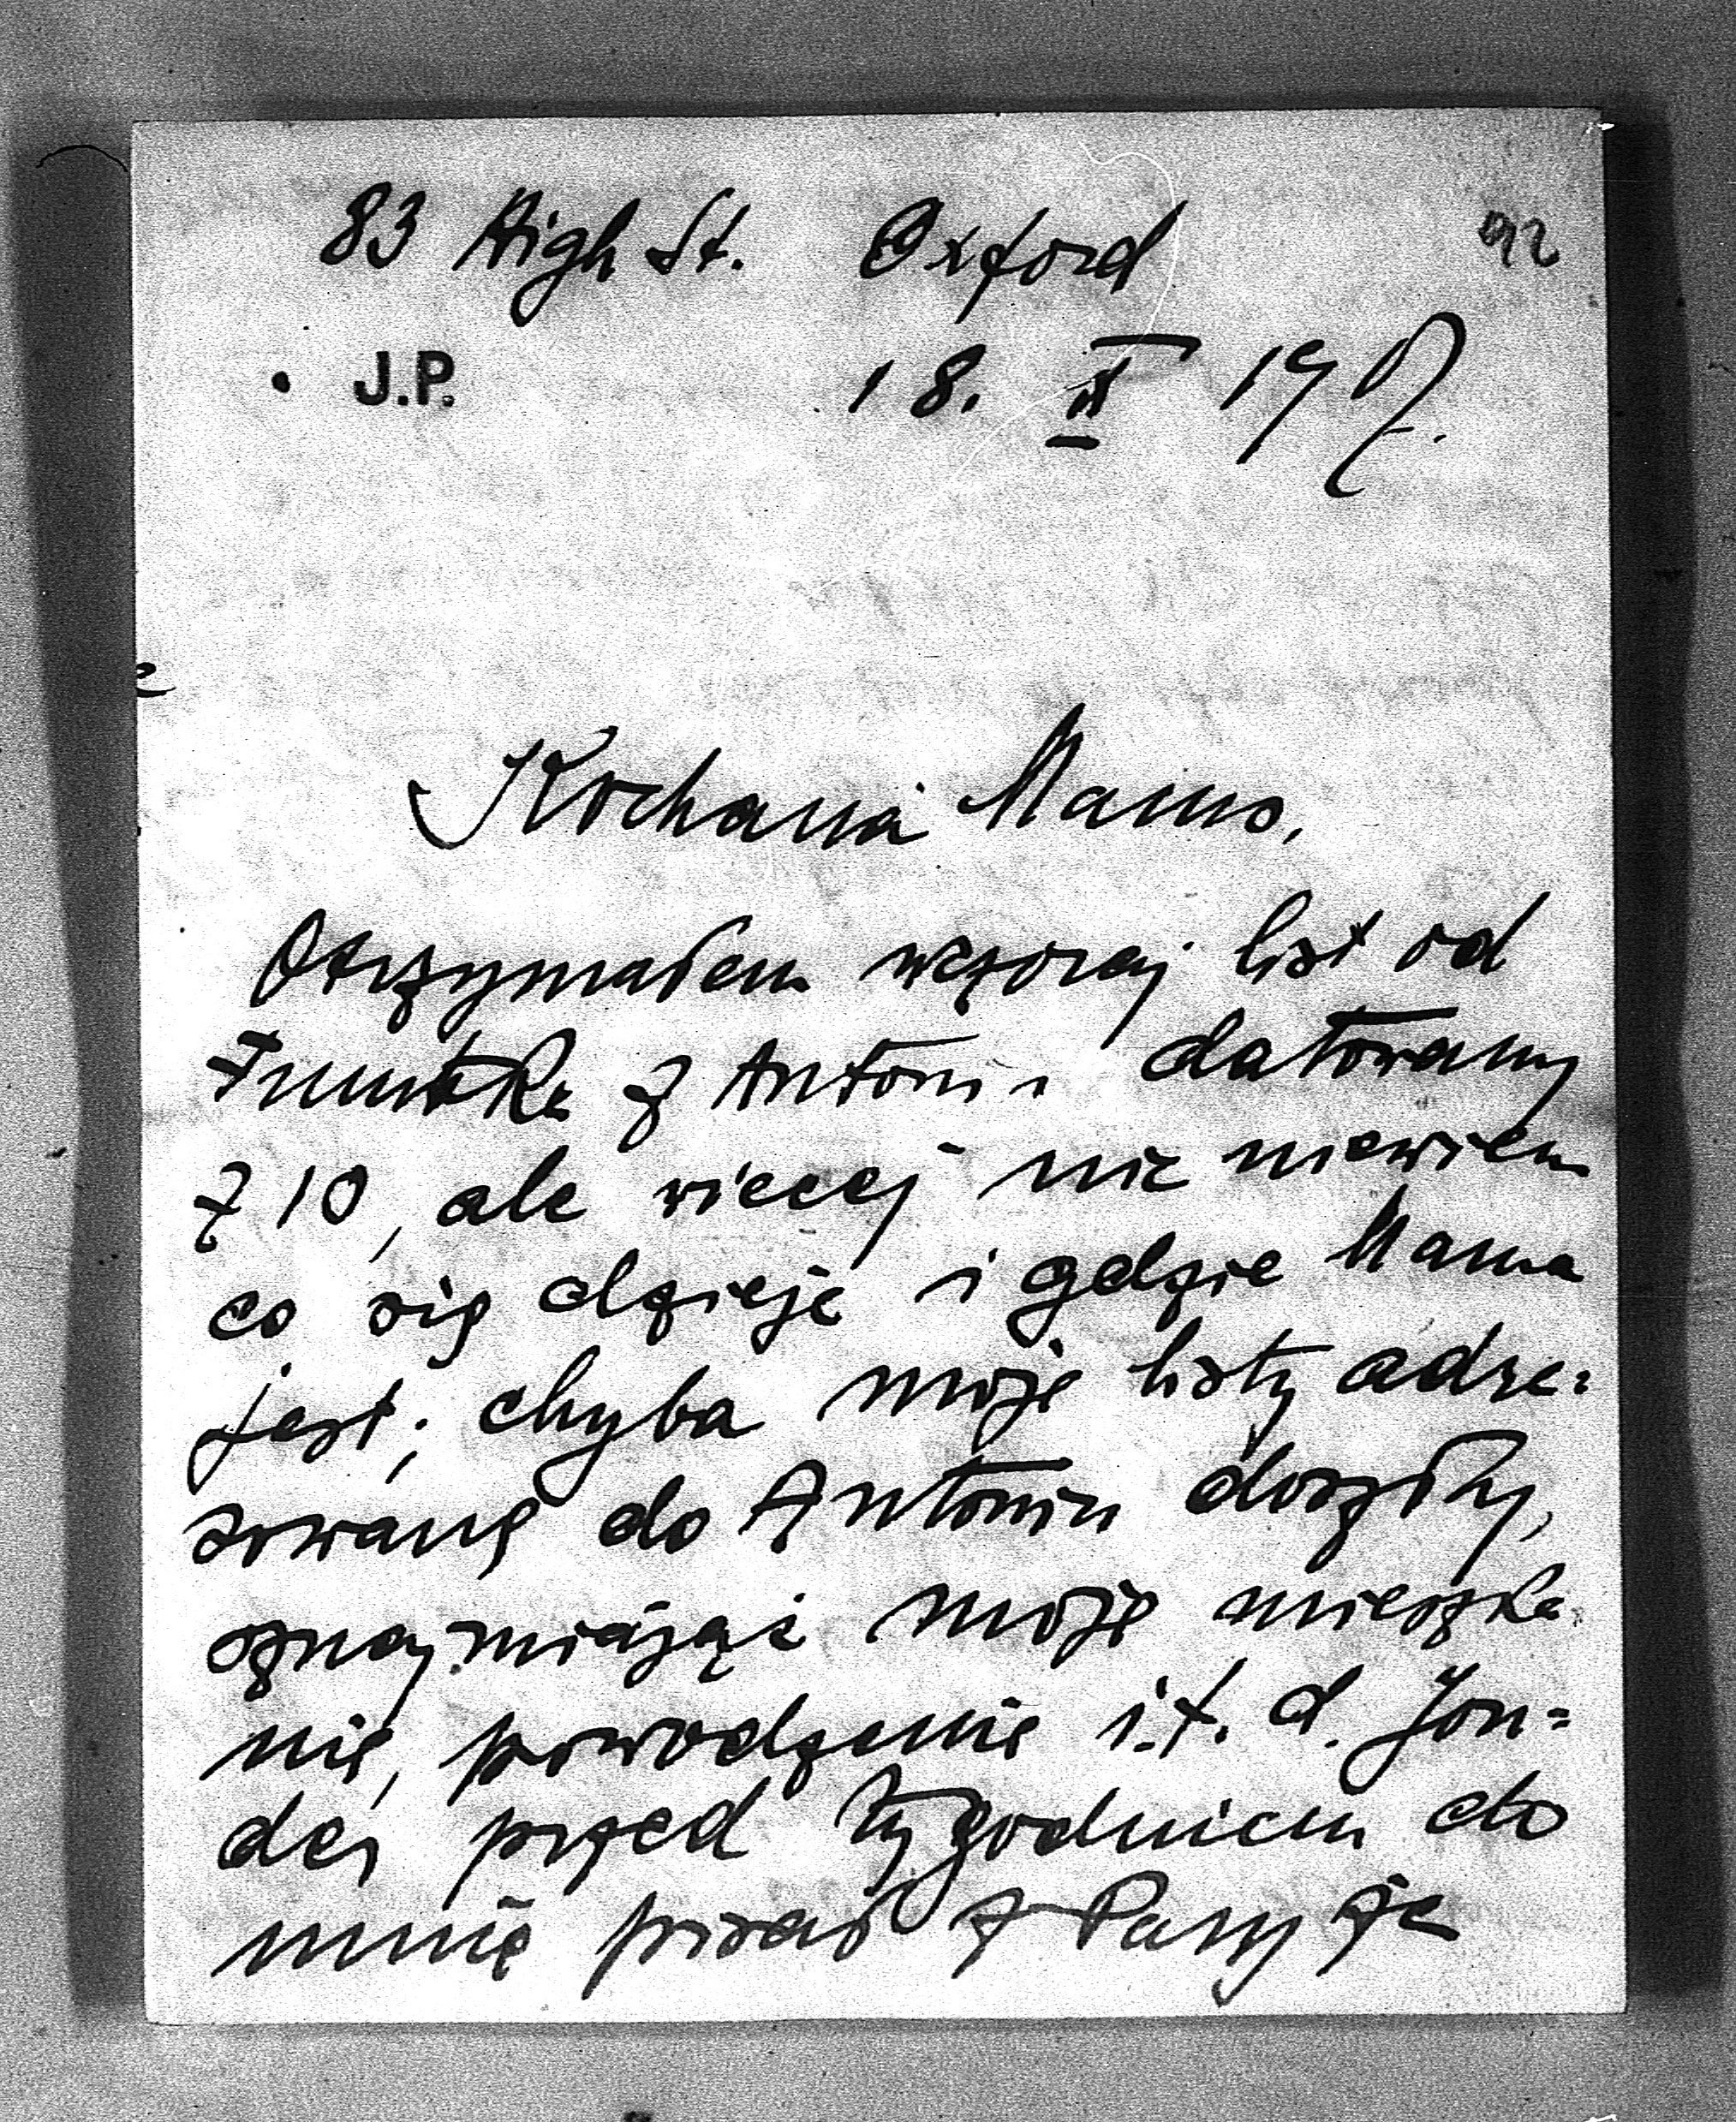 83 High St. Oxford
92
J.P.
18. II 190
Kochana Mamo,
Otrzymałem wczoraj list od
z Antonin datowany
z 10, ale więcej nic niewiem
co się dzieje i gdzie Mama
jest; chyba moje listy adre=
sowane do Antonin doszły,
oznajmiając moje mieszka
nie, powodzenie i.t.d. Jon=
deś przed tygodniem do
mnie pisał z Paryża